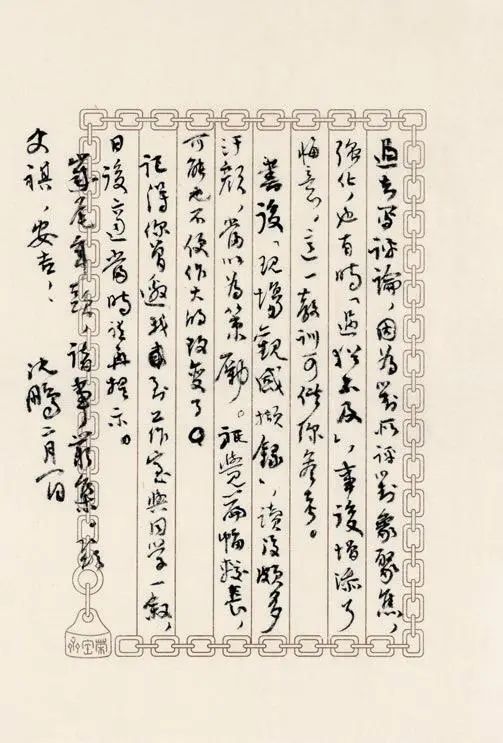 過去寫評論，因為對所評對象聚焦，
強化，也有時「過猶不及」，事後增添了
悔意。這一教訓可供你參考。
書後「現場觀感擷錄」，讀後頗多
汗顏，當以為策勵。祇覺篇幅較長，
可能也不便作大的改變了。
記得你曾邀我到工作室與同學一敘，
日後適當時請再提示。
歲尾年頭，諸事叢集。
文祺，安吉！
沈鵬 二月一日
榮寶齋